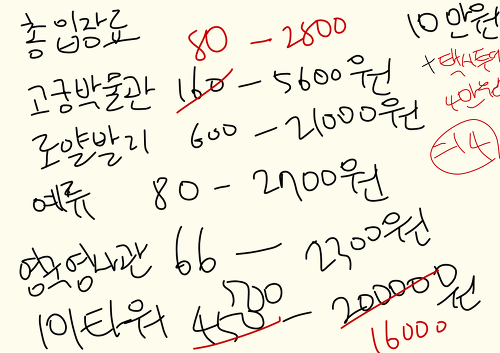 총 입장료 80 - 2800
고궁박물관 160 - 5600원
로얄발리 600 - 21000원
예류 80 - 2700원
영국영사관 66 - 2300원
101타워 - 200000원
16000
10만원
+ 택시투어
4만원
=14